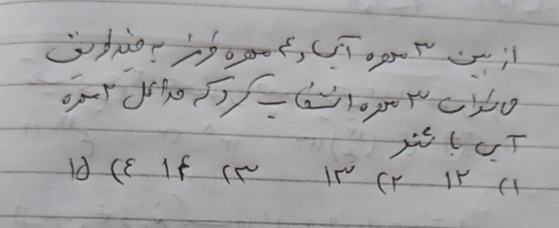 از بین ۳ مهره آبی و ۴ مهره قرمز به چند طریق
می‌توان ۳ مهره انتخاب کرد که حداقل ۲ مهره
آبی باشند
۱) ۱۲ ۲) ۱۳ ۳) ۱۴ ۴) ۱۵